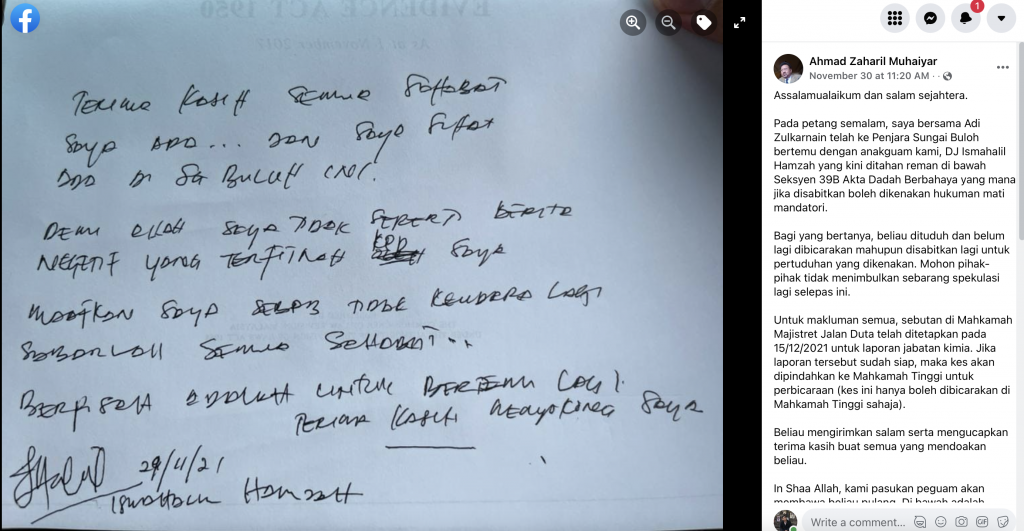 EVIDENCE ACT 1950
As at 1 November 2017
TERIMA KASIH SEMUA SAHABAT
SAYA ADA... DAN SAYA SIHAT
ADA DI SG BULUH
DEMI ALLAH SAYA TIDAK SEPERTI BERITA
NEGETIF YANG TERFITNAH KPD SAYA
MAAFKAN SAYA SEBAB TIDAK LAGI
SABARLAH SEMUA SAHABAT...
BERPISAH ADALAH UNTUK BERTEMU LAGI.
TERIMA KASIH MENYOKONG SAYA
29/11/21
HAMZAH
1
Ahmad Zaharil Muhaiyar
November 30 at 11:20 AM · ·
Assalamualaikum dan salam sejahtera.
Pada petang semalam, saya bersama Adi
Zulkarnain telah ke Penjara Sungai Buloh
bertemu dengan anakguam kami, DJ Ismahalil
Hamzah yang kini ditahan reman di bawah
Seksyen 39B Akta Dadah Berbahaya yang mana
jika disabitkan boleh dikenakan hukuman mati
mandatori.
Bagi yang bertanya, beliau dituduh dan belum
lagi dibicarakan mahupun disabitkan lagi untuk
pertuduhan yang dikenakan. Mohon pihak-
pihak tidak menimbulkan sebarang spekulasi
lagi selepas ini.
Untuk makluman semua, sebutan di Mahkamah
Majistret Jalan Duta telah ditetapkan pada
15/12/2021 untuk laporan jabatan kimia. Jika
laporan tersebut sudah siap, maka kes akan
dipindahkan ke Mahkamah Tinggi untuk
perbicaraan (kes ini hanya boleh dibicarakan di
Mahkamah Tinggi sahaja).
Beliau mengirimkan salam serta mengucapkan
terima kasih buat semua yang mendoakan
beliau.
In Shaa Allah, kami pasukan peguam akan
membawa beliau pulang. Di bawah adalah
Write a comment...
GIF